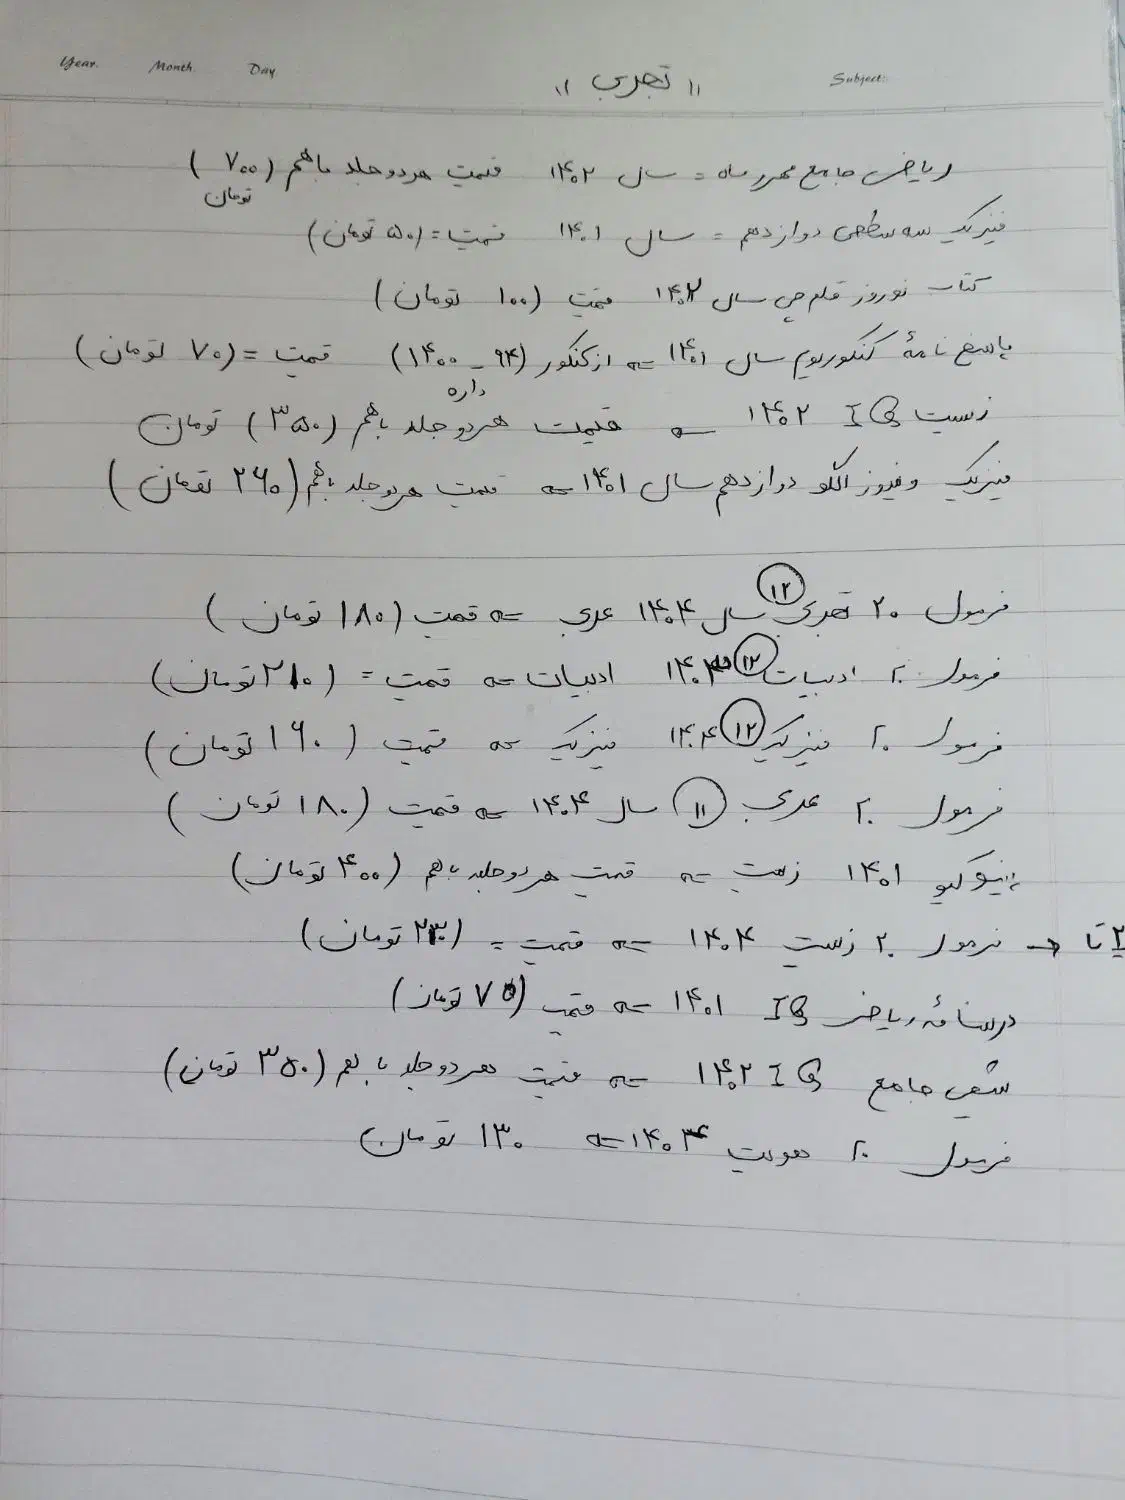 Year. Month. Day. "تجربی" Subject:
ریاضی جامع مهروماه = سال ۱۴۰۲ قیمت هر دو جلد باهم (۷۰۰)
تومان
فیزیک سه سطحی دوازدهم = سال ۱۴۰۱ قیمت = (۵۰ تومان)
کتاب نوروز قلم چی سال ۱۴۰۲ قیمت (۱۰۰ تومان)
پاسخ نامهٔ کنکوریوم سال ۱۴۰۱ => از کنکور (۹۴ - ۱۴۰۰) قیمت = (۷۰ تومان)
داره
زیست IQ ۱۴۰۲ => قیمت هر دو جلد باهم (۳۵۰) تومان
فیزیک و فیوز الگو دوازدهم سال ۱۴۰۱ => قیمت هر دو جلد باهم (۲۶۰ تومان)
فرمول ۲۰ تجربی ۱۲ سال ۱۴۰۴ عربی => قیمت (۱۸۰ تومان)
فرمول ۲۰ ادبیات ۱۲ ۱۴۰۴ ادبیات => قیمت = (۲۱۰ تومان)
فرمول ۲۰ فیزیک ۱۲ ۱۴۰۴ فیزیک => قیمت (۱۶۰ تومان)
فرمول ۲۰ عربی ۱۱ سال ۱۴۰۴ => قیمت (۱۸۰ تومان)
نیوکیو ۱۴۰۱ زیست => قیمت هر دو جلد باهم (۴۰۰ تومان)
۲ تا -> فرمول ۲۰ زیست ۱۴۰۴ => قیمت = (۲۳۰ تومان)
درسنامه ریاضی IQ ۱۴۰۱ => قیمت (۷۵ تومان)
شیمی جامع IQ ۱۴۰۲ => قیمت هر دو جلد با هم (۳۵۰ تومان)
فرمول ۲۰ هویت ۱۴۰۴ => ۱۳۰ تومان